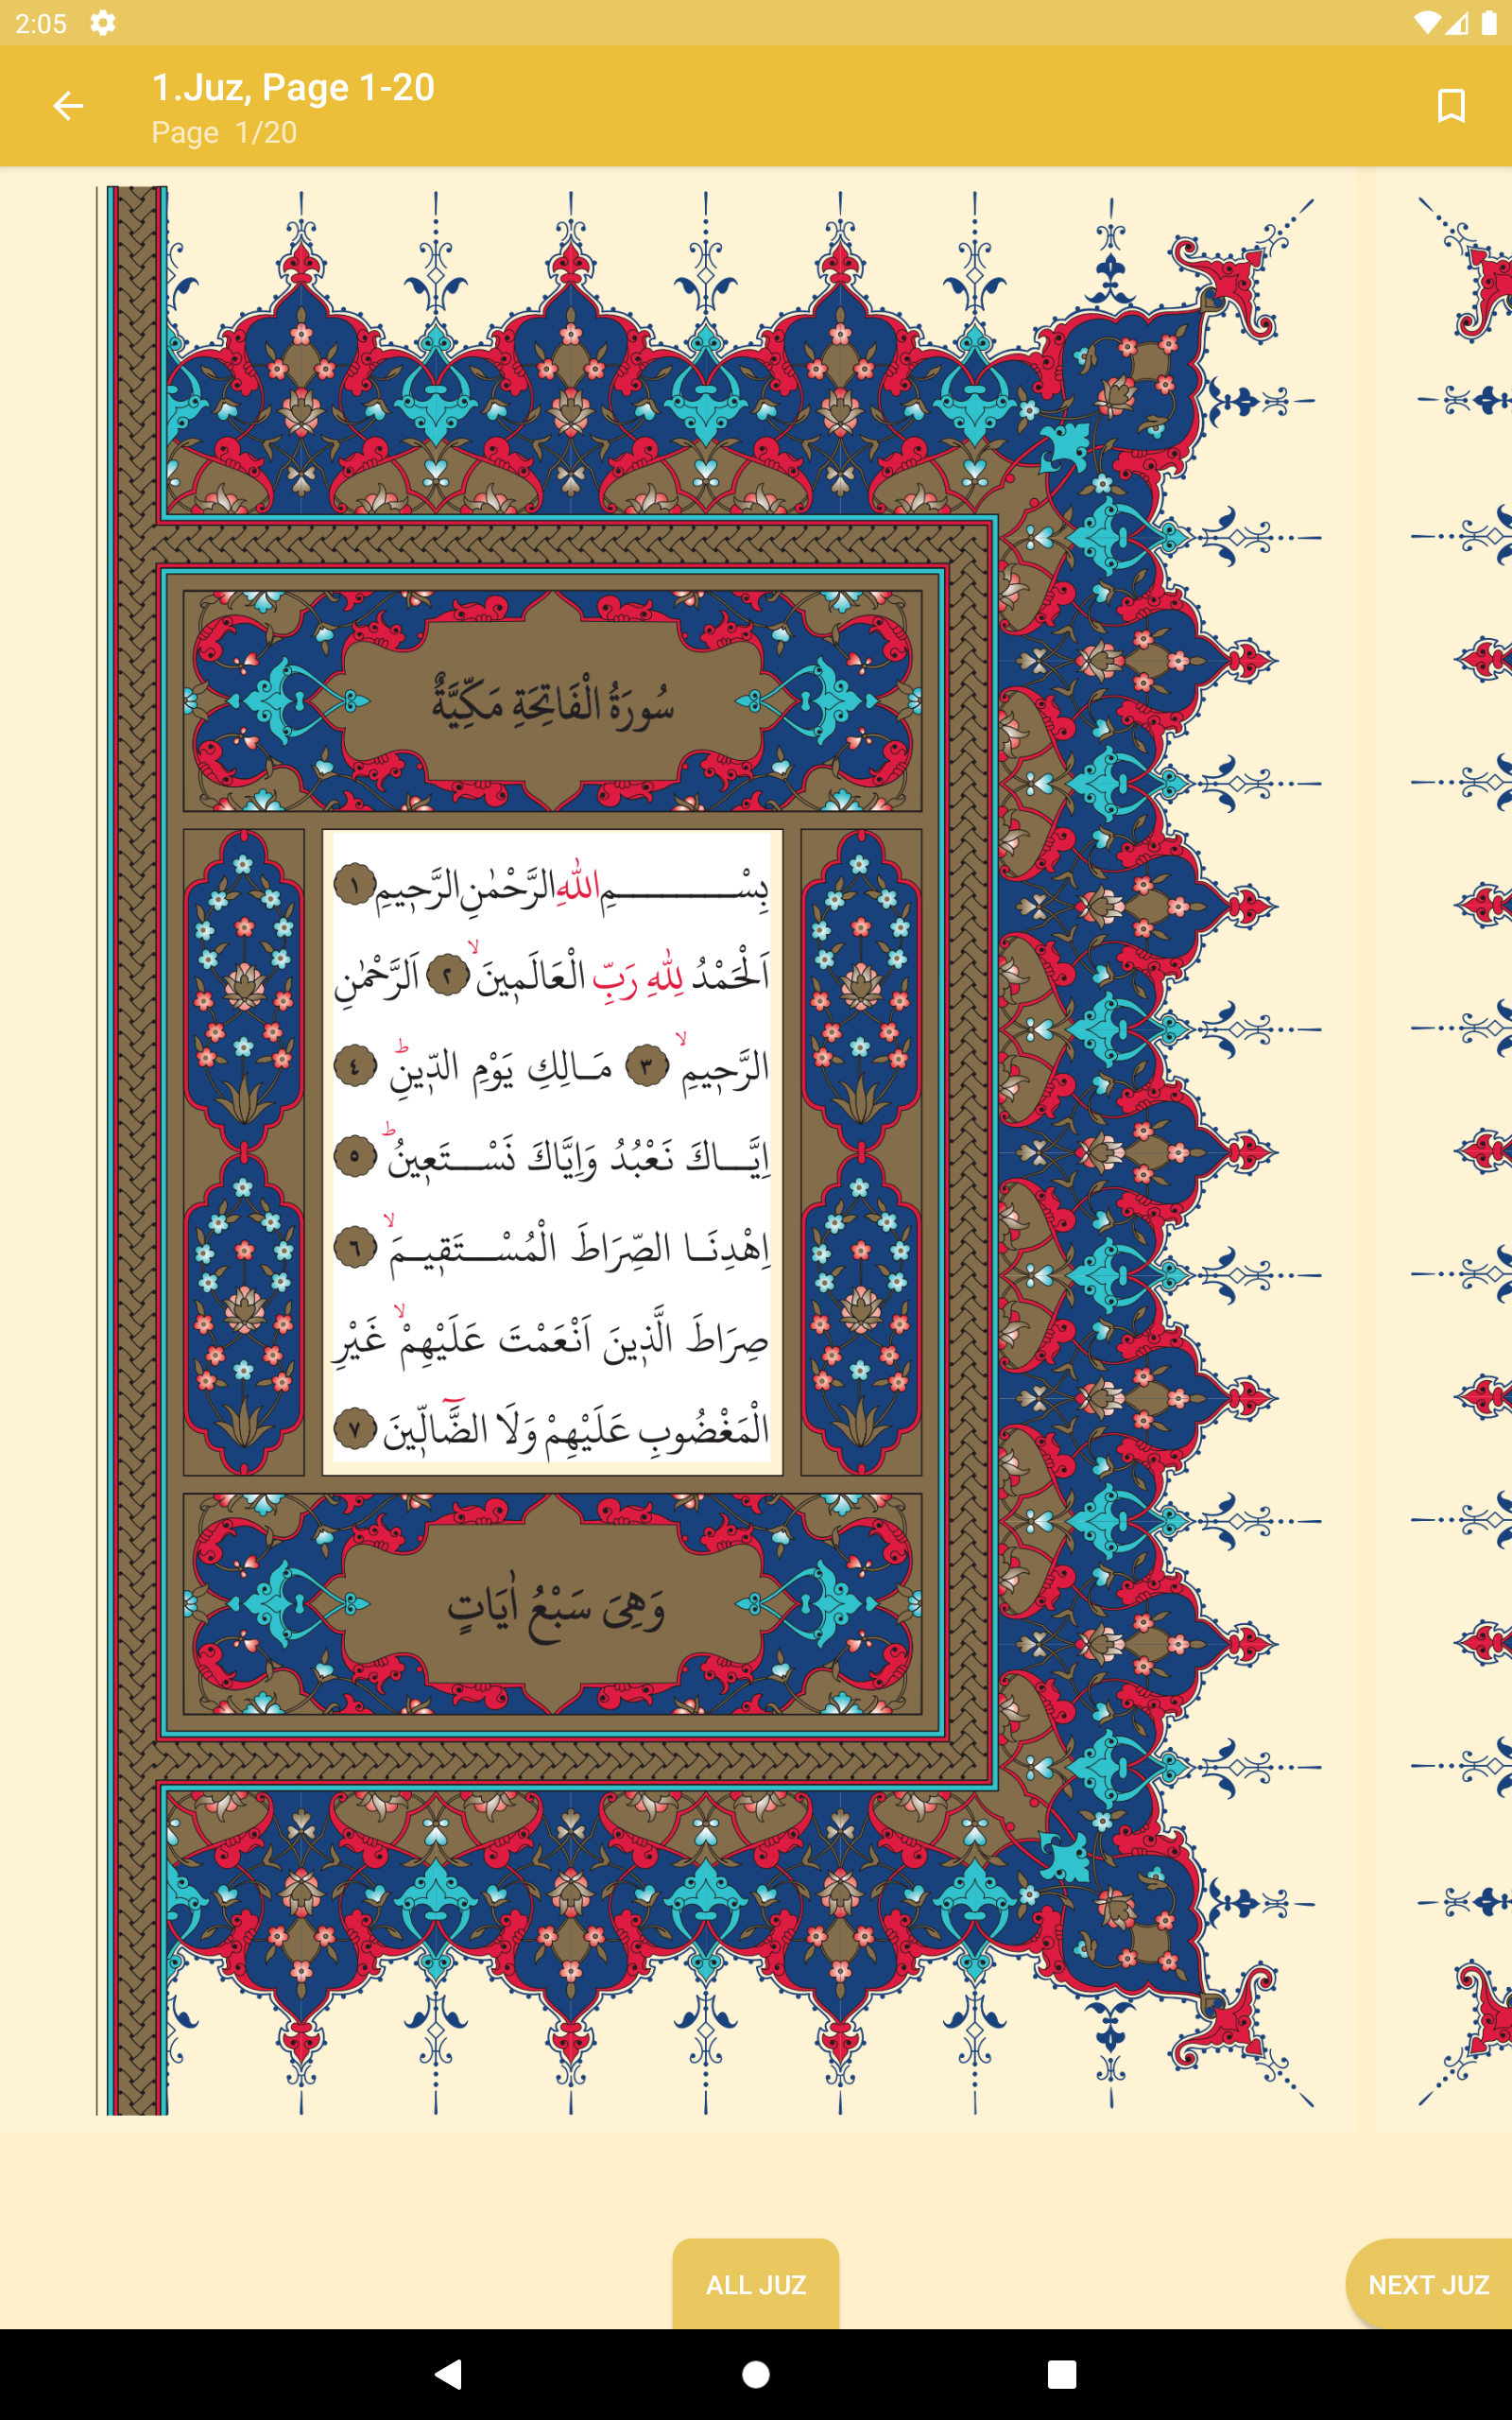 2:05
1.Juz, Page 1-20
Page 1/20
سُورَةُ الْفَاتِحَةِ مَكِّيَّةٌ
بِسْــــــــمِ اللّٰهِ الرَّحْمٰنِ الرَّحٖيمِ ١
اَلْحَمْدُ لِلّٰهِ رَبِّ الْعَالَمٖينَۙ ٢ اَلرَّحْمٰنِ
الرَّحٖيمِۙ ٣ مَـالِكِ يَوْمِ الدّٖينِؕ ٤
اِيَّـــاكَ نَعْبُدُ وَاِيَّاكَ نَسْــتَعٖينُؕ ٥
اِهْدِنَــا الصِّرَاطَ الْمُسْـــتَقٖيــمَۙ ٦
صِرَاطَ الَّذٖينَ اَنْعَمْتَ عَلَيْهِمْۙ غَيْرِ
الْمَغْضُوبِ عَلَيْهِمْ وَلَا الضَّٓالّٖينَ ٧
وَهِىَ سَبْعُ اٰيَاتٍ
ALL JUZ
NEXT JUZ